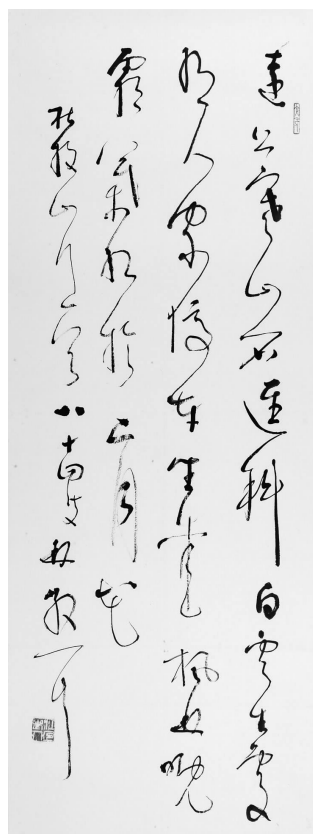 遠上寒山石徑斜白雲生處
有人家停車坐愛楓林晚
霜葉紅於二月花
杜牧山行一首八十四叟林散耳